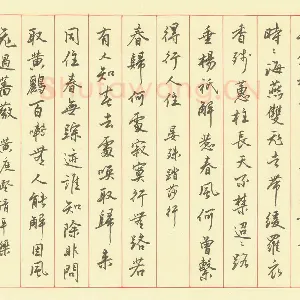 時時海燕雙飛去帶緩羅衣
香殘蕙炷長天不禁迢迢路
垂楊祇解惹春風何曾繫
得行人住 晏殊踏莎行
春歸何處寂寞行無路若
有人知春去處喚取歸來
同住春無踪迹誰知除非問
取黃鸝百囀無人能解因風
飛過薔薇 黃庭堅清平樂